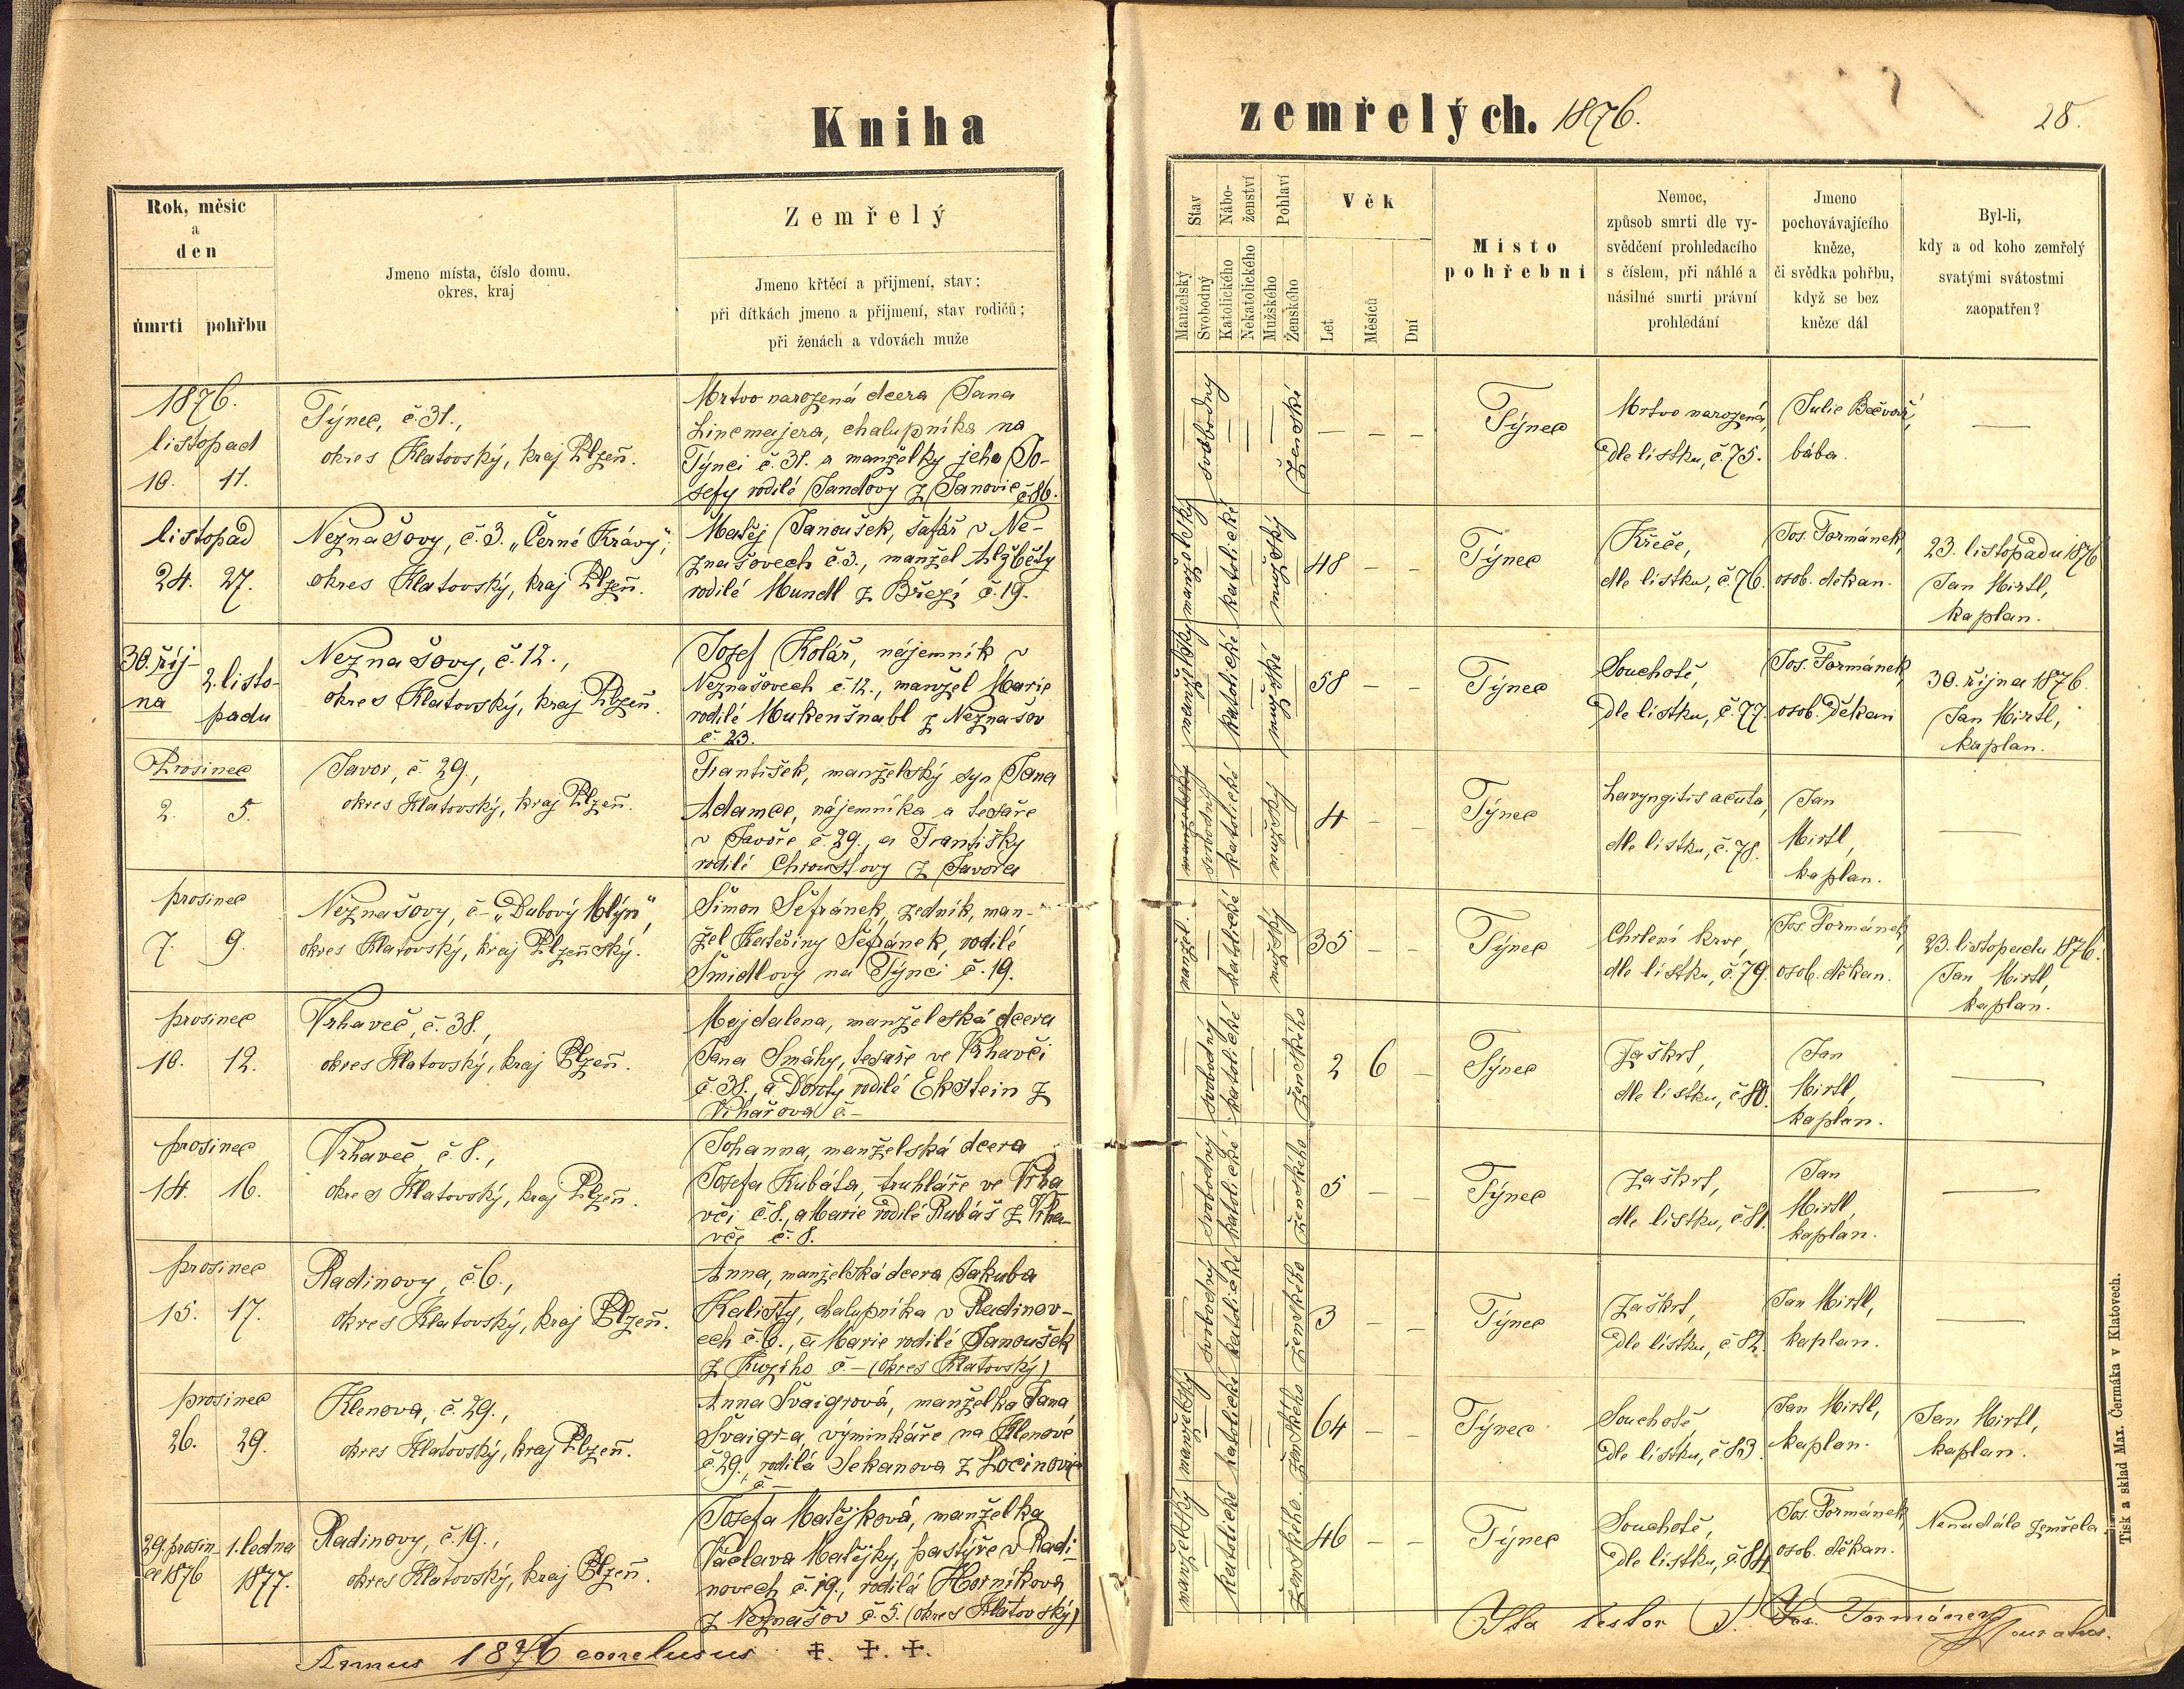 Kniha
zemřelých. 1876.
28.
Rok, měsíc
a
den
úmrtí pohřbu
Jmeno místa, číslo domu,
okres, kraj
Zemřelý
Jmeno křtěcí a přijmení, stav;
při dítkách jmeno a přijmení, stav rodičů;
při ženách a vdovách muže
Stav
Manželský
Svobodný
Nábo-
ženství
Katolického
Nekatolického
Pohlaví
Mužského
Ženského
Věk
Let
Měsíců
Dní
Místo
pohřební
Nemoc,
způsob smrti dle vy-
svědčení prohledacího
s číslem, při náhlé a
násilné smrti právní
prohledání
Jmeno
pochovávajícího
kněze,
či svědka pohřbu,
když se bez
kněze dál
Byl-li,
kdy a od koho zemřelý
svatými svátostmi
zaopatřen?
1876.
listopad
10. 11.
Týnec, č. 31.,
okres Klatovský, kraj Plzeň.
Mrtvo narozená dcera Jana
Lincmajera, chalupníka na
Týnci č. 31. a manželky jeho Jo-
sefy rodilé Jandovy z Janovic č. 86.
svobodný
ženské
— — —
Týnec
Mrtvo narozená,
dle lístku, č. 75.
Julie Bečvář,
bába.
—
listopad
24. 27.
Neznašovy, č. 3. „Černé Krávy“,
okres Klatovský, kraj Plzeň.
Matěj Janoušek, šafář v Ne-
znašovech č. 3., manžel Alžběty
rodilé Mundl z Březí č. 19.
manželský
katolické
mužský
48 — —
Týnec
Křeče,
dle lístku, č. 76.
Jos. Formánek,
osob. děkan.
23. listopadu 1876
Jan Mirtl,
kaplan.
30. říj-
na
2. listo-
padu
Neznašovy, č. 12.,
okres Klatovský, kraj Plzeň.
Josef Kolář, nájemník v
Neznašovech č. 12., manžel Marie
rodilé Mukenšnabl z Neznašov
č. 23.
manželský
katolické
mužské
58 — —
Týnec
Souchotě,
dle lístku, č. 77.
Jos. Formánek,
osob. děkan
30. října 1876.
Jan Mirtl,
kaplan.
Prosinec
2. 5.
Javor, č. 29.,
okres Klatovský, kraj Plzeň.
František, manželský syn Jana
Adamce, nájemníka a tesaře
v Javoře č. 29., a Františky
rodilé Chroustovy z Javora
manželský
svobodný
katolické
mužský
4 — —
Týnec
Laryngitis acuta,
dle lístku, č. 78.
Jan
Mirtl,
kaplan.
—
prosinec
7. 9.
Neznašovy, č – „Dubový Mlýn“,
okres Klatovský, kraj Plzeňský.
Šimon Šefránek, zedník, man-
žel Kateřiny Šefránek, rodilé
Šmidlovy na Týnci č. 19.
manžel.
katolické
mužský
35 — —
Týnec
Chrlení krve,
dle lístku, č. 79.
Jos. Formánek,
osob. děkan.
23. listopadu 1876.
Jan Mirtl,
kaplan.
prosinec
10. 12.
Vrhaveč, č. 38.,
okres Klatovský, kraj Plzeň.
Majdalena, manželská dcera
Jana Smáhy, tesaře ve Vrhavči
č. 38., a Doroty rodilé Ekstein z
č. –
svobodný
katolické
ženského
2 6 —
Týnec
Zaškrt,
dle lístku, č. 80.
Jan
Mirtl,
kaplan.
—
prosinec
14. 16.
Vrhaveč č. 8.,
okres Klatovský, kraj Plzeň.
Johanna, manželská dcera
Josefa Kubáta, truhláře ve Vrha
vči č. 8., a Marie rodilé Rubáš z Vrha-
vče č. 8.
svobodný
katolické
ženského
5 — —
Týnec
Zaškrt,
dle lístku, č. 81.
Jan
Mirtl,
kaplan.
—
prosinec
15. 17.
Radinovy, č. 6.,
okres Klatovský, kraj Plzeň.
Anna, manželská dcera Jakuba
Kalisty, chalupníka v Radinov-
ech č. 6., a Marie rodilé Janoušek
z č. – (okres Klatovský)
svobodný
katolické
ženského
3 — —
Týnec
Zaškrt,
dle lístku, č. 82.
Jan Mirtl,
kaplan.
—
prosinec
26. 29.
Klenova, č. 29.,
okres Klatovský, kraj Plzeň.
Anna Švaigrová, manželka Jana
Švaigra, výminkáře na Klenové
č 29., rodilá Sekanova z
č. –
manželský
katolické
ženského.
64 — —
Týnec
Souchotě,
dle lístku, č. 83.
Jan Mirtl,
kaplan.
Jan Mirtl,
kaplan.
29. prosin-
ce 1876
1. ledna
1877.
Radinovy, č. 19.,
okres Klatovský, kraj Plzeň.
Josefa Matějková, manželka
Václava Matějky, pastýře v Radi-
novech č. 19., rodilá Horníkova
z Neznašov č. 5. (okres Klatovský)
manželský
katolické
ženského.
46 — —
Týnec
Souchotě,
dle lístku, č. 84.
Jos. Formánek,
osob. děkan.
Nenadále zemřela.
Annus 1876 conclusus ‡. ‡. ‡.
Ita testor P. Jos. Formánek
Tisk a sklad Max. Čermáka v Klatovech.